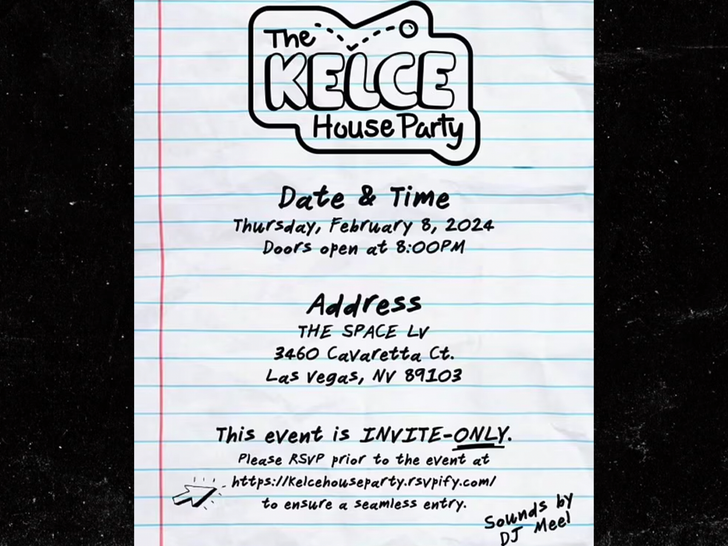 The
KELCE
House Party
Date & Time
Thursday, February 8, 2024
Doors open at 8:00PM
Address
THE SPACE LV
3460 Cavaretta Ct.
Las Vegas, NV 89103
This event is INVITE-ONLY.
Please RSVP prior to the event at
https://kelcehouseparty.rsvpify.com/
to ensure a seamless entry.
Sounds by
DJ Meel